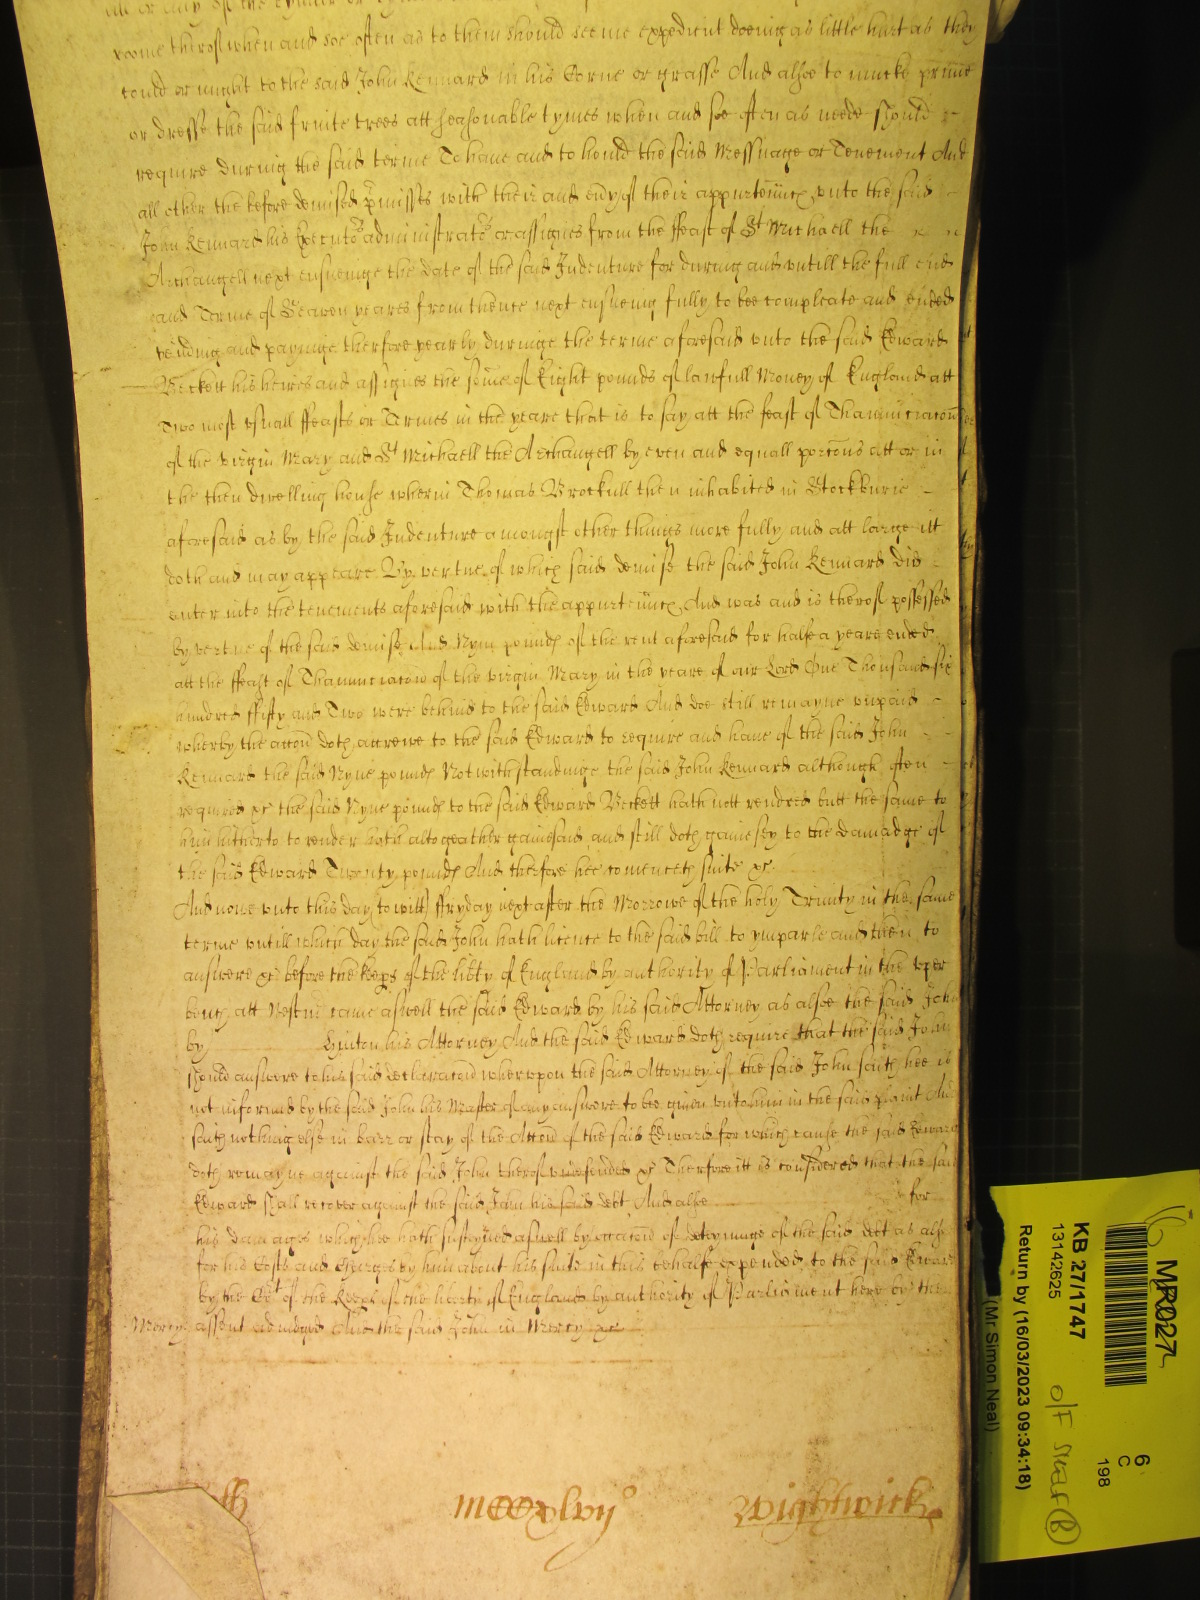 roome therof when and soe often as to them should seeme expedient doeing as little hurt as they
could or might to the said John Kennard in his Corne or grasse And alsoe to prune
or dresse the said fruite trees att seasonable tymes when and soe often as neede should
require during the said terme To have and to hould the said Messuage or Tenement And
all other the before demised p̄misses with their and ev̄y of their appurteñncs unto the said
John Kennard his Executors administrators or assignes from the ffeast of St Michaell the
Archangell next ensueinge the date of the said Indenture for during and untill the full end
and Terme of Seaven yeares from thence next ensueing fully to bee compleate and ended
yeilding and payinge therfore yearly duringe the terme aforesaid unto the said Edward
Beckett his heires and assignes the som̄e of Eight pounds of lawfull Money of England att
Two most usuall ffeasts or Termes in the yeare that is to say att the feast of Thannunciacōn
of the virgin Mary and St Michaell the Archangell by even and equall porc̄ons att or in
the then dwelling house wherin Thomas Brockull then inhabited in Stockburie
aforesaid as by the said Indenture amongst other things more fully and att large itt
doth and may appeare By vertue of which said demise the said John Kennard did
enter into the tenements aforesaid with the appurteñncs And was and is therof possessed
by vertue of the said demise And Nyne pounds of the rent aforesaid for halfe a yeare ended
att the ffeast of Thannunciacōn of the virgin Mary in the yeare of our Lord One Thousand six
hundred ffifty and Two were behind to the said Edward And doe still remayne unpaid
wherby the acc̄on doth accrewe to the said Edward to require and have of the said John
Kennard the said Nyne pounds Notwithstandinge the said John Kennard although often
required &c the said Nyne pounds to the said Edward Beckett hath nott rendred butt the same to
him hitherto to render hath altogeather gainesaid and still doth gainesey to the damadge of
the said Edward Twenty pounds And therfore hee com̄enceth suite &c
And nowe unto this day to witt ffryday next after the Morrowe of the holy Trinity in the same
terme untill which day the said John hath licence to the said bill to ymparle and then to
answere &c before the Keeps of the lib̄ty of England by authority of Parliament in the upper
bench att Westm̄ came aswell the said Edward by his said Attorney as alsoe the said John
by Hinton his Attorney And the said Edward doth require that the said John
should answere to his said declarac̄on wherupon the said Attorney of the said John saith hee is
not informed by the said John his Master of any answere to bee given unto him in the said plaint And
saith nothing else in barr or stay of the Acc̄on of the said Edward for which cause the said Edward
doth remayne against the said John therof undefended &c Therfore itt is considered that the said
Edward shall recover against the said John his said debt And alsoe for
his damages which hee hath susteyned aswell by occac̄on of deteyninge of the said debt as alsoe
for his Costs and Charges by him about his suite in this behalfe expended to the said Edward
by the Cort of the Keeps of the liberty of England by authority of Parliament here by the
Mercy assent adiudged And the said John in Mercy &c
MCCxlvijo
Wightwick
16
MR027
6
C
198
KB 27/1747
13142625
Return by (16/03/2023 09:34:18)
(Mr Simon Neal)